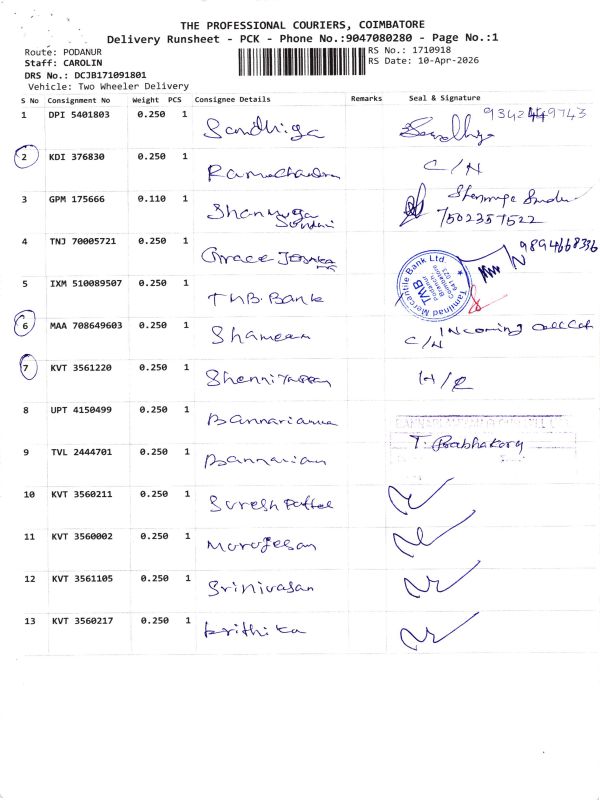 THE PROFESSIONAL COURIERS, COIMBATORE
Delivery Runsheet - PCK - Phone No.:9047080280 - Page No.:1
Route: PODANUR
RS No.: 1710918
Staff: CAROLIN
RS Date: 10-Apr-2026
DRS No.: DCJB171091801
Vehicle: Two Wheeler Delivery
S No Consignment No Weight PCS Consignee Details Remarks Seal & Signature
1 DPI 5401803 0.250 1 Sandhiga Sandhiya
2 KDI 376830 0.250 1 Ramachandran C/N
3 GPM 175666 0.110 1 Shanmuga Sundari
7502357522
4 TNJ 70005721 0.250 1 Grace 9894668336
5 IXM 510089507 0.250 1 TMB. Bank
Tamilnad Mercantile Bank Ltd.
TMB
Podanur
Branch
Coimbatore
641 023
6 MAA 708649603 0.250 1 Shameem C/N Incoming
7 KVT 3561220 0.250 1
8 UPT 4150499 0.250 1 Bannariamma
9 TVL 2444701 0.250 1 Bannarian T. Prabhakary
10 KVT 3560211 0.250 1 Suresh Pattel
11 KVT 3560002 0.250 1 Murugesan
12 KVT 3561105 0.250 1 Srinivasan
13 KVT 3560217 0.250 1 krithika